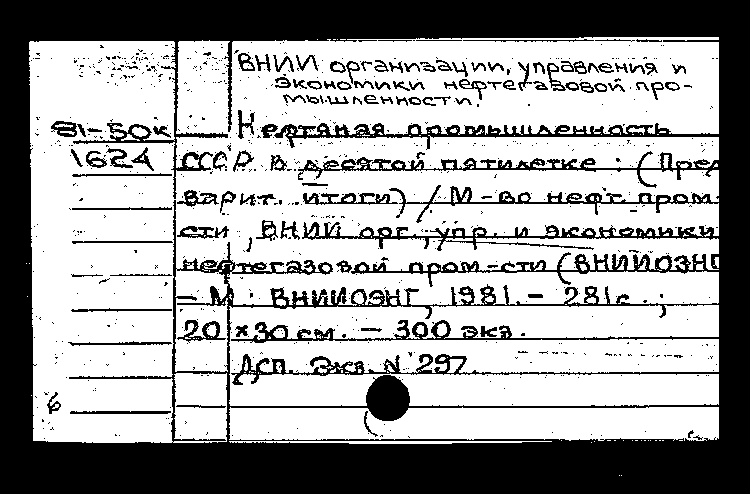 ВНИИ организации, управления и
экономики нефтегазовой про-
мышленности.
81-50к Нефтяная промышленность
1624 СССР в десятой пятилетке : (Пред
варит. итоги) / М-во нефт. пром-
сти, ВНИИ орг., упр. и экономики
нефтегазовой пром-сти (ВНИИОЭНГ
- М : ВНИИОЭНГ, 1981. - 281с. ;
20 × 30 см. - 300 экз.
Дсп. Экз. N 297.
6